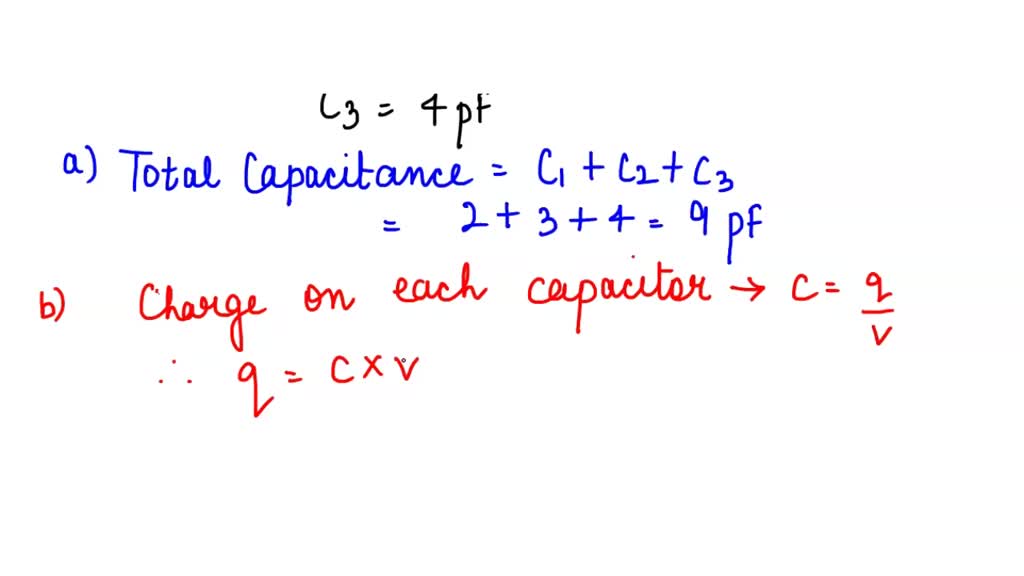 C3 = 4 pF
a) Total Capacitance = C1 + C2 + C3
= 2 + 3 + 4 = 9 pF
b) Charge on each capacitor → C = q/V
∴ q = C × V